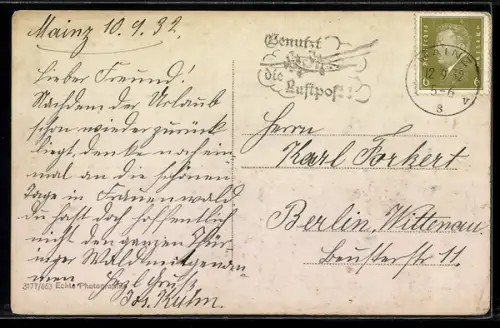 Mainz 10.9.32.
Lieber Freund!
Nachdem der Urlaub
schon wieder zurück
liegt, denke noch ein-
mal an die schönen
Tage in Frauenwald
Du hast doch hoffentlich
nicht den ganzen Thü-
ringer Wald mitgenom-
men. Herzl. Gruß
Jos. Kuhn.
3177/663 Echte Photographie
Benutzt
die
Luftpost!
MAINZ
12.9.32
5-6
Herrn
Karl Forkert
Berlin, Wittenau.
Beusterstr 11.